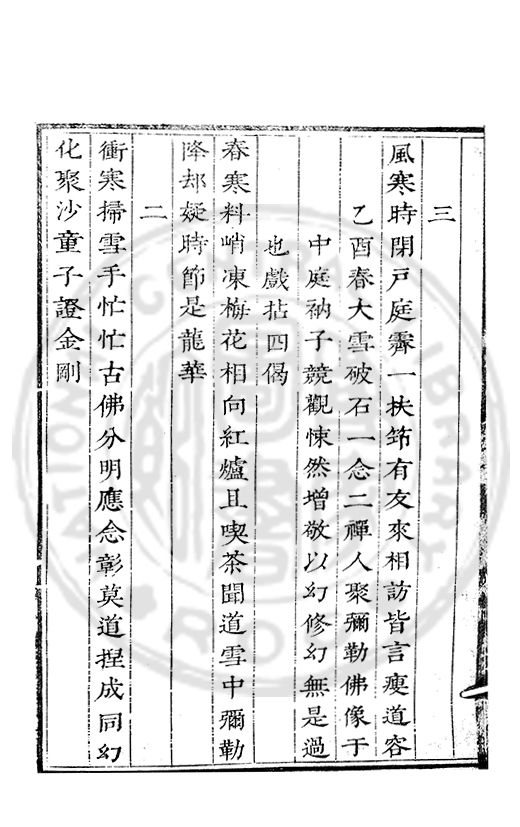 三
風寒時閉戸庭霽一扶筇有友來相訪皆言瘦道容
乙酉春大雪破石一念二禪人聚彌勒佛像于
中庭衲子競觀悚然增敬以幻修幻無是過
也戲拈四偈
春寒料峭凍梅花相向紅爐且喫茶聞道雪中彌勒
降却疑時節是龍華
二
衝寒掃雪手忙忙古佛分明應念彰莫道捏成同幻
化聚沙童子證金剛